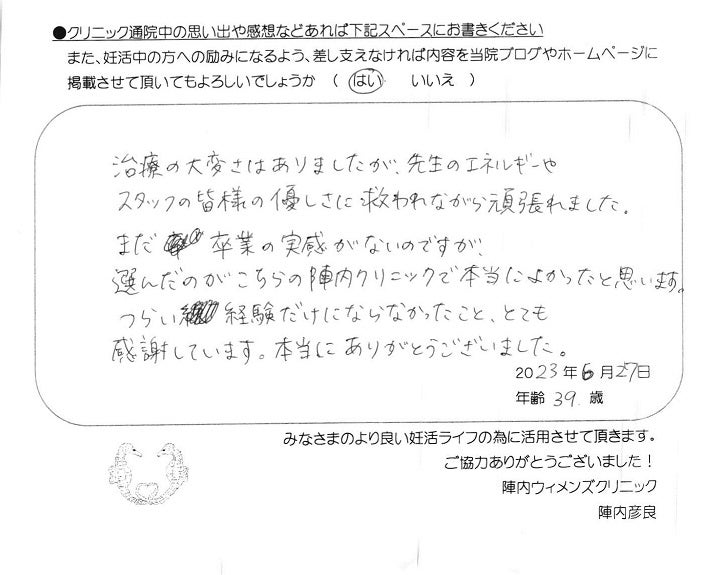 ●クリニック通院中の思い出や感想などあれば下記スペースにお書きください
また、妊活中の方への励みになるよう、差し支えなければ内容を当院ブログやホームページに
掲載させて頂いてもよろしいでしょうか （ はい いいえ ）
治療の大変さはありましたが、先生のエネルギーや
スタッフの皆様の優しさに救われながら頑張れました。
まだ 卒業の実感がないのですが、
選んだのがこちらの陣内クリニックで本当によかったと思います。
つらい 経験だけにならなかったこと、とても
感謝しています。本当にありがとうございました。
2023年6月27日
年齢 39. 歳
みなさまのより良い妊活ライフの為に活用させて頂きます。
ご協力ありがとうございました！
陣内ウィメンズクリニック
陣内彦良